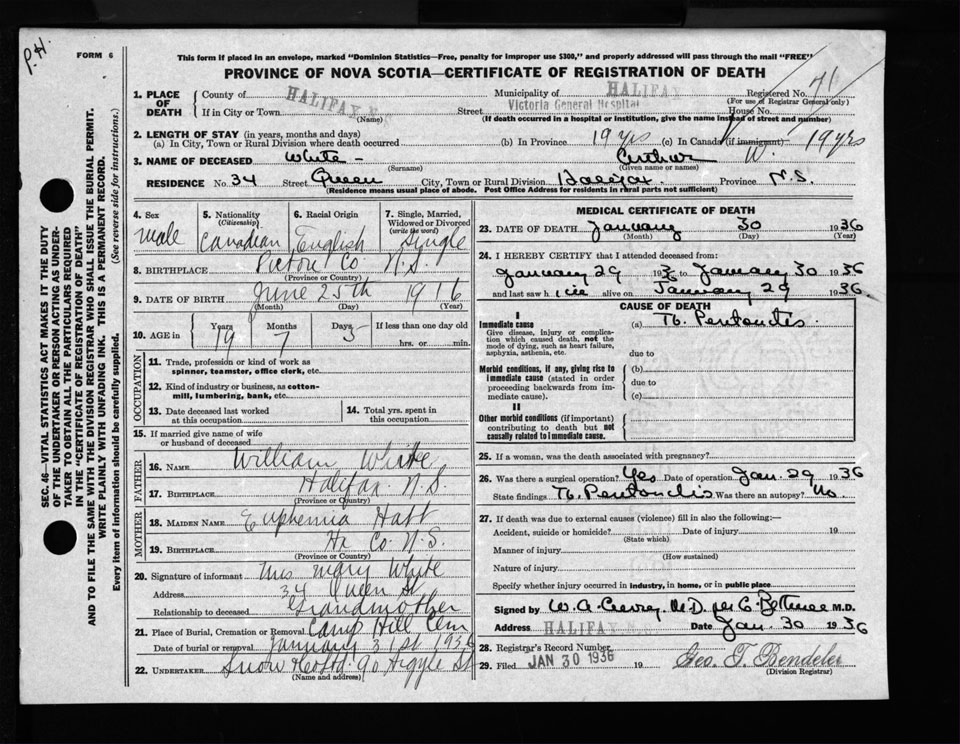 P.H.
FORM 6
This form if placed in an envelope, marked "Dominion Statistics—Free, penalty for improper use $300," and properly addressed will pass through the mail "FREE"
PROVINCE OF NOVA SCOTIA—CERTIFICATE OF REGISTRATION OF DEATH
1. PLACE OF DEATH
County of HALIFAX Municipality of HALIFAX Registered No. 71
(For use of Registrar General only)
If in City or Town (Name) Street Victoria General Hospital House No.
(If death occurred in a hospital or institution, give the name instead of street and number)
2. LENGTH OF STAY (in years, months and days)
(a) In City, Town or Rural Division where death occurred (b) In Province 19 yrs (c) In Canada (if immigrant) 19 yrs
3. NAME OF DECEASED White – Arthur W.
(Surname) (Given name or names)
RESIDENCE No. 34 Street Queen City, Town or Rural Division Halifax Province N.S.
(Residence means usual place of abode. Post Office Address for residents in rural parts not sufficient)
4. Sex male
5. Nationality (Citizenship) Canadian
6. Racial Origin English
7. Single, Married, Widowed or Divorced (write the word) Single
8. BIRTHPLACE Pictou Co N.S.
(Province or Country)
9. DATE OF BIRTH June 25th 1916
(Month) (Day) (Year)
10. AGE in Years 19 Months 7 Days 5 If less than one day old hrs. or min.
OCCUPATION
11. Trade, profession or kind of work as spinner, teamster, office clerk, etc.
12. Kind of industry or business, as cotton-mill, lumbering, bank, etc.
13. Date deceased last worked at this occupation
14. Total yrs. spent in this occupation
15. If married give name of wife or husband of deceased
FATHER
16. NAME William White
17. BIRTHPLACE Halifax N.S.
(Province or Country)
MOTHER
18. MAIDEN NAME Euphemia Hatt
19. BIRTHPLACE Hx Co N.S.
(Province or Country)
20. Signature of informant Mrs Mary White
Address 34 Queen St
Relationship to deceased Grandmother
21. Place of Burial, Cremation or Removal Camp Hill Cem
Date of burial or removal January 31st 1936
22. UNDERTAKER Snow & Co Ltd 90 Argyle St
(Name and address)
MEDICAL CERTIFICATE OF DEATH
23. DATE OF DEATH January 30 1936
(Month) (Day) (Year)
24. I HEREBY CERTIFY that I attended deceased from:
January 29 1936 to January 30 1936
and last saw h im alive on January 29 1936
CAUSE OF DEATH
I
Immediate cause (a) Tb. Peritonitis.
Give disease, injury or complication which caused death, not the mode of dying, such as heart failure, asphyxia, asthenia, etc.
due to
Morbid conditions, if any, giving rise to immediate cause (stated in order proceeding backwards from immediate cause). (b)
due to
(c)
II
Other morbid conditions (if important) contributing to death but not causally related to immediate cause.
25. If a woman, was the death associated with pregnancy?
26. Was there a surgical operation? Yes Date of operation Jan. 29 1936
State findings Tb. Peritonitis Was there an autopsy? No.
27. If death was due to external causes (violence) fill in also the following:—
Accident, suicide or homicide? Date of injury 19
(State which)
Manner of injury
(How sustained)
Nature of injury
Specify whether injury occurred in industry, in home, or in public place
Signed by W. A. M.D. per M.D.
Address HALIFAX Date Jan. 30 1936
28. Registrar's Record Number
29. Filed JAN 30 1936 19 Geo. T. Bendeler
(Division Registrar)
SEC. 46—VITAL STATISTICS ACT MAKES IT THE DUTY OF THE UNDERTAKER OR PERSON ACTING AS UNDERTAKER TO OBTAIN ALL THE PARTICULARS REQUIRED IN THE "CERTIFICATE OF REGISTRATION OF DEATH"
AND TO FILE THE SAME WITH THE DIVISION REGISTRAR WHO SHALL ISSUE THE BURIAL PERMIT.
WRITE PLAINLY WITH UNFADING INK. THIS IS A PERMANENT RECORD.
Every item of information should be carefully supplied. (See reverse side for instructions.)